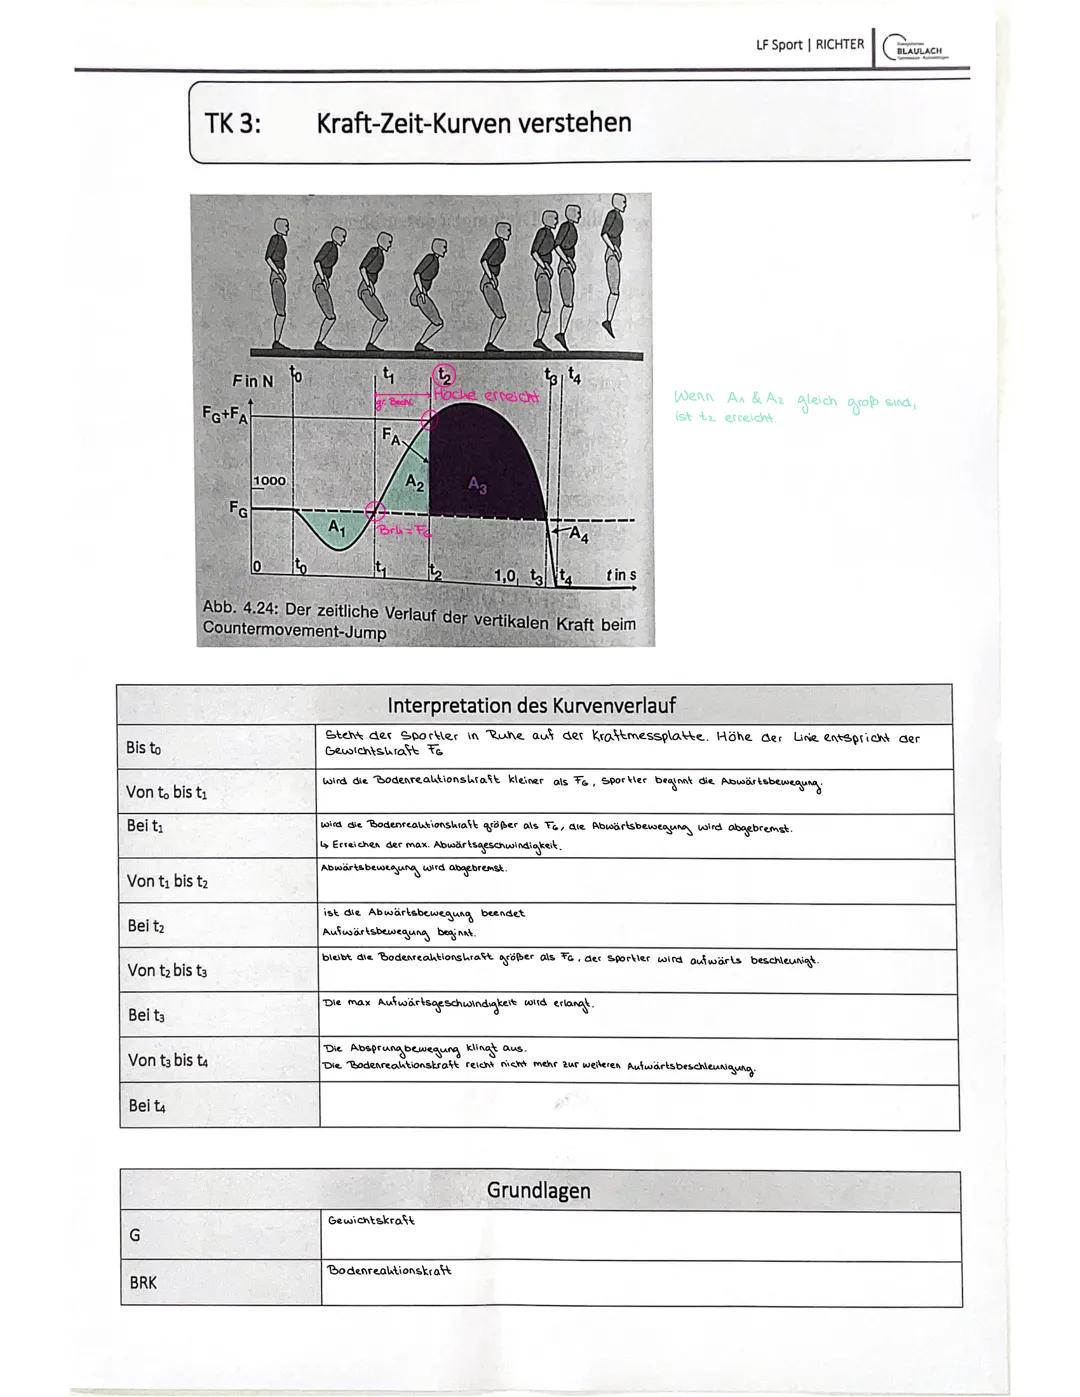 LF Sport | RICHTER
BLAULACH
TK 3: Kraft-Zeit-Kurven verstehen
F in N
t0 t1 t2 t3 t4
gr. Beschl.
Hocke erreicht
FG+FA
FA
1000
A2
A3
FG
A1
BrK = FG
A4
0 t0 t1 t2 1,0 t3 t4 t in s
Abb. 4.24: Der zeitliche Verlauf der vertikalen Kraft beim
Countermovement-Jump
Wenn A1 & A2 gleich groß sind,
ist t2 erreicht.
Interpretation des Kurvenverlauf
Bis t0
Steht der Sportler in Ruhe auf der Kraftmessplatte. Höhe der Linie entspricht der
Gewichtskraft FG
Von t0 bis t1
wird die Bodenreaktionskraft kleiner als FG, Sportler beginnt die Abwärtsbewegung.
Bei t1
wird die Bodenreaktionskraft größer als FG, die Abwärtsbewegung wird abgebremst.
↳ Erreichen der max. Abwärtsgeschwindigkeit.
Von t1 bis t2
Abwärtsbewegung wird abgebremst.
Bei t2
ist die Abwärtsbewegung beendet
Aufwärtsbewegung beginnt.
Von t2 bis t3
bleibt die Bodenreaktionskraft größer als FG, der Sportler wird aufwärts beschleunigt.
Bei t3
Die max Aufwärtsgeschwindigkeit wird erlangt.
Von t3 bis t4
Die Absprungbewegung klingt aus.
Die Bodenreaktionskraft reicht nicht mehr zur weiteren Aufwärtsbeschleunigung.
Bei t4
Grundlagen
G
Gewichtskraft
BRK
Bodenreaktionskraft